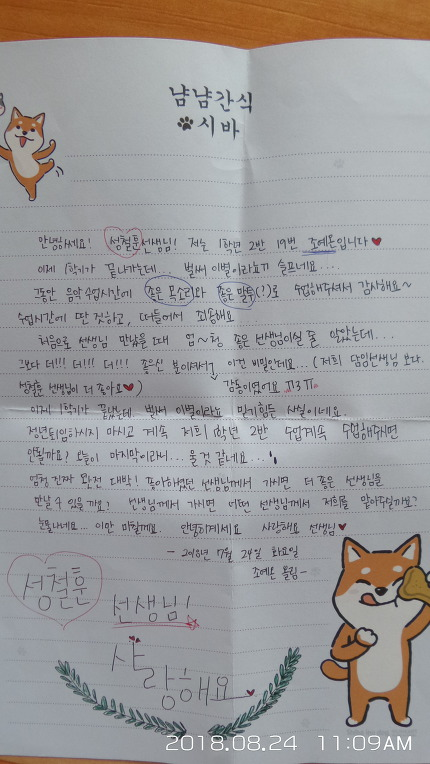 냠냠간식
시바
안녕하세요! 성철훈선생님! 저는 1학년 2반 19번 조예온입니다♥
이제 1학기가 끝나가는데.... 벌써 이별이라뇨ㅠ 슬프네요....
그동안 음악 수업시간에 좋은 목소리와 좋은 말투(?)로 수업해주셔서 감사해요~
수업시간에 딴 것하고, 떠들어서 죄송해요
처음으로 선생님 만났을 때 엄~청 좋은 선생님이실 줄 알았는데...
그보다 더!!! 더!!! 더!!! 좋으신 분이셔서 이건 비밀인데요...(저희 담임선생님 보다.
성철훈 선생님이 더 좋아요♥) 감동이였어요 ㅠㅠ
이제 1학기가 끝났는데 벌써 이별이라뇨 믿기 힘든 사실이네요.
정년퇴임하시지 마시고 계속 저희 1학년 2반 수업계속 수업해주시면
안될까요? 오늘이 마지막이라니... 울 것 같네요...
엄청 진짜 완전 대박! 좋아하였던 선생님께서 가시면 더 좋은 선생님을
만날 수 있을까요? 선생님께서 가시면 어떤 선생님께서 저희를 맡아주실까요?
눈물나네요... 이만 마칠께요. 안녕히계세요 사랑해요 선생님♥
- 2018년 7월 24일 화요일
조예온 올림-
성철훈
선생님!
사
랑해요
2018.08.24 11:09AM